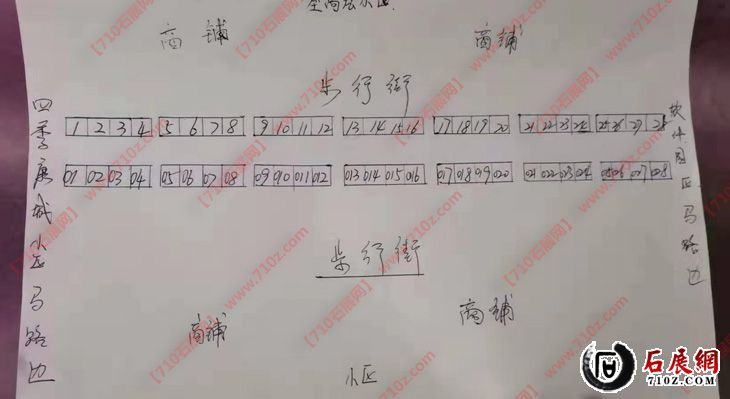 商铺 商铺
步行街
四季康城小区马路边
软件园区马路边
1 2 3 4 5 6 7 8 9 10 11 12 13 14 15 16 17 18 19 20 21 22 23 24 25 26 27 28
01 02 03 04 05 06 07 08 09 010 011 012 013 014 015 016 017 018 019 020 021 022 023 024 025 026 027 028
步行街
商铺 商铺
小区
【710石展网】www.710z.com
石展網
710Z.COM